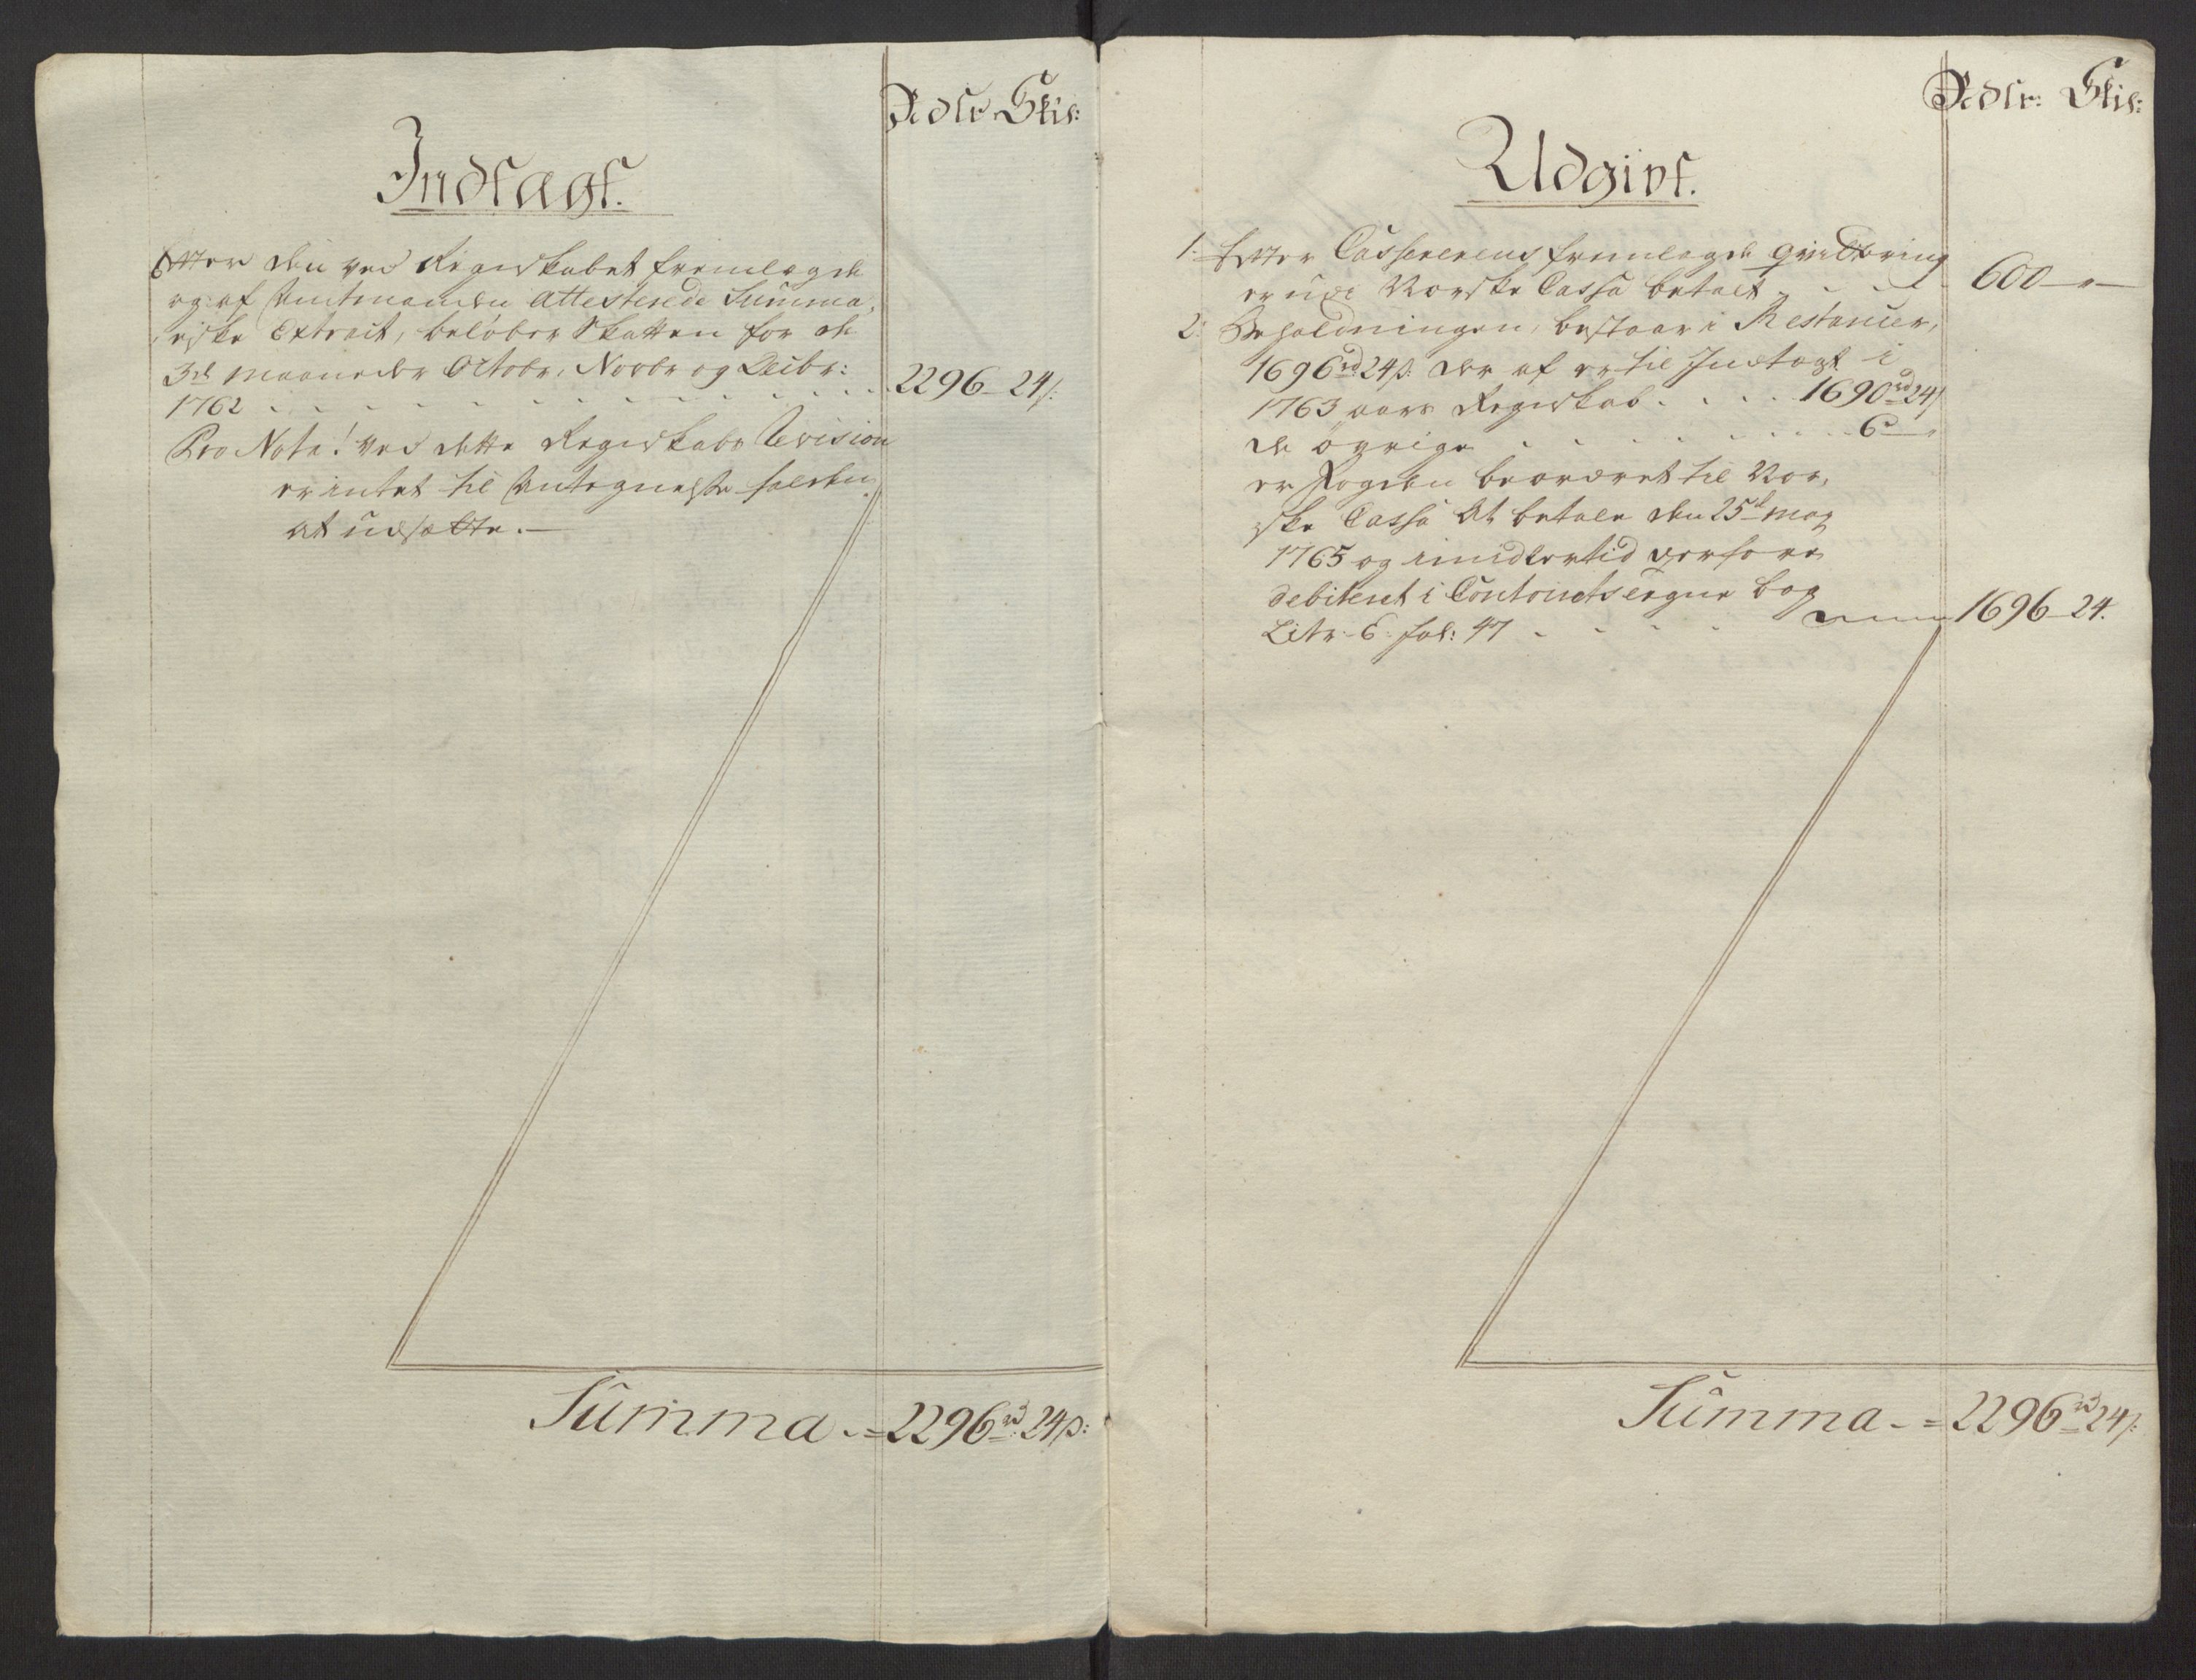 Rdlr Skil:
Indtægt.
Efter den ved Regnskabet fremlagde
og af Amtmanden Attesterede Summa,
riske Extract, beløber Skatten for de
3de Maaneder Octobr, Novbr og Decbr:
1762 . . . . . . . . . . . . . 2296 - 24 ß:
Pro Nota! ved dette Regnskabs Revision
er intet til Antegnelse falden
at udsætte. —
Summa -= 2296 rd 24 ß:
Rdlr: Skil:
Udgivt.
1. Efter Casserernes fremlagde qvittering
er udi Norske Cassa betalt - - - 600 - "
2. Beholdningen, bestaar i Restancer,
1696 rd 24 ß. der af er til Indtægt i
1763 aars Regnskab . . . . 1690 rd 24 ß
de øvrige . . . . . . . . 6 - "
er Fogden beordret til Nor,
ske Cassa At betale den 25de May
1765 og imidlertid derfore
debiteret i Contoirets bog
Litr: E: fol: 47 - - - - 1696 - 24.
Summa - = 2296 rd 24 ß: